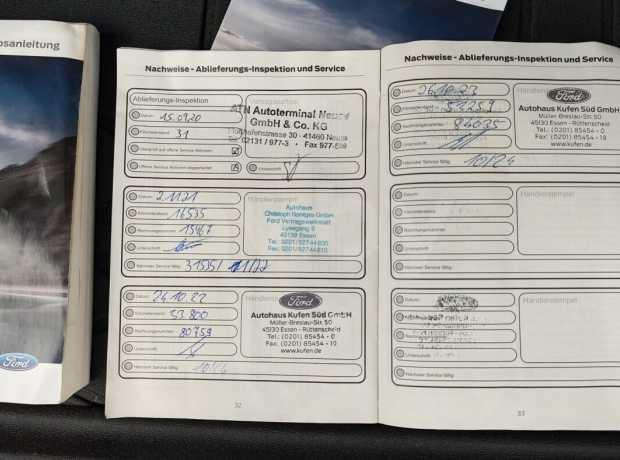 bsanleitung
Nachweise - Ablieferungs-Inspektion und Service
Ablieferungs-Inspektion
Datum 15.09.20
Kilometerstand 31
Unterschrift
ATN Autoterminal Neuss
GmbH & Co. KG
30 - 41460 Neuss
02131 / 977-3 • Fax 977-
Datum 2.11.21
Kilometerstand 16535
Rechnungsnummer
Unterschrift
Nächster Service fällig 11/22
Händlerstempel
Autohaus
Christoph Göntges GmbH
Ford Vertragswerkstatt
45139 Essen
Datum 24.10.22
Kilometerstand 33.800
Rechnungsnummer 80759
Unterschrift
Nächster Service fällig
Ford
Autohaus Kufen Süd GmbH
Müller-Breslau-Str. 50
45130 Essen - Rüttenscheid
Tel.: (0201) 85454 - 0
Fax: (0201) 85454 - 19
www.kufen.de
32
Ford
Nachweise - Ablieferungs-Inspektion und Service
Datum 26.10.23
Kilometerstand 51259
Rechnungsnummer 84035
Unterschrift
Nächster Service fällig 10/24
Ford
Autohaus Kufen Süd GmbH
Müller-Breslau-Str. 50
45130 Essen - Rüttenscheid
Tel.: (0201) 85454 - 0
Fax: (0201) 85454 - 19
www.kufen.de
Datum
Kilometerstand
Rechnungsnummer
Unterschrift
Nächster Service fällig
Händlerstempel
Datum
Unterschrift
Nächster Service fällig
Händlerstempel
33